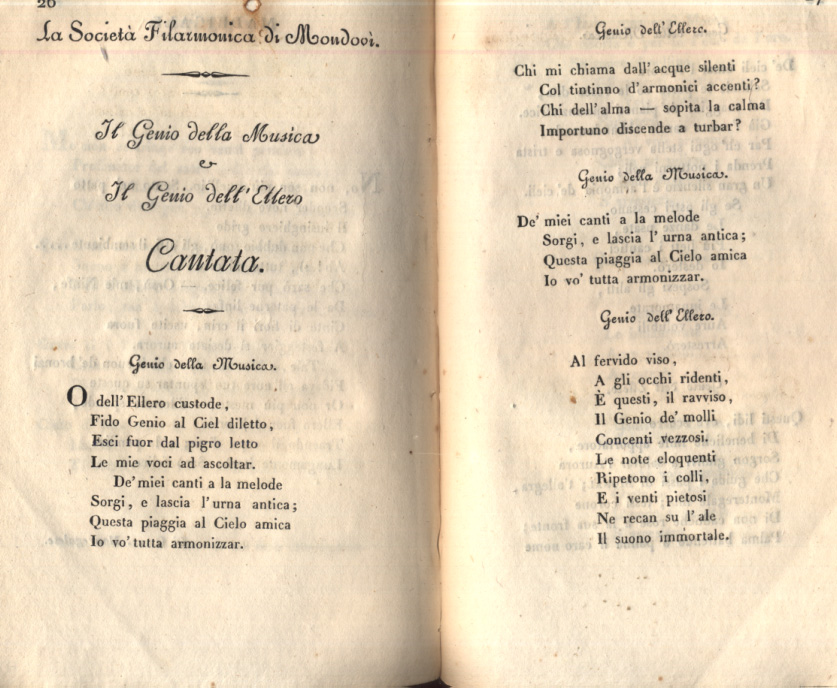 26
La Società Filarmonica di Mondovì.
Il Genio della Musica
e
Il Genio dell'Ellero
Cantata.
Genio della Musica.
O dell'Ellero custode,
Fido Genio al Ciel diletto,
Esci fuor dal pigro letto
Le mie voci ad ascoltar.
De' miei canti a la melode
Sorgi, e lascia l'urna antica;
Questa piaggia al Cielo amica
Io vo' tutta armonizzar.
Genio dell'Ellero.
Chi mi chiama dall'acque silenti
Col tintinno d'armonici accenti?
Chi dell'alma — sopita la calma
Importuno discende a turbar?
Genio della Musica.
De' miei canti a la melode
Sorgi, e lascia l'urna antica;
Questa piaggia al Cielo amica
Io vo' tutta armonizzar.
Genio dell'Ellero.
Al fervido viso,
A gli occhi ridenti,
È questi, il ravviso,
Il Genio de' molli
Concenti vezzosi.
Le note eloquenti
Ripetono i colli,
E i venti pietosi
Ne recan su l'ale
Il suono immortale.